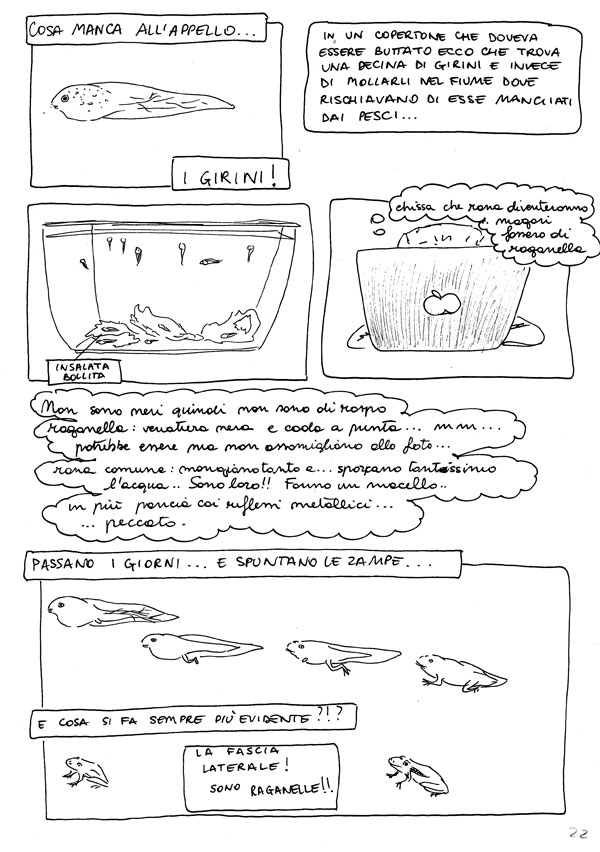 COSA MANCA ALL'APPELLO...
I GIRINI!
IN UN COPERTONE CHE DOVEVA
ESSERE BUTTATO ECCO CHE TROVA
UNA DECINA DI GIRINI E INVECE
DI MOLLARLI NEL FIUME DOVE
RISCHIAVANO DI ESSE MANGIATI
DAI PESCI...
INSALATA
BOLLITA
chissa che rana diventeranno
.. magari
fossero di
raganella
Non sono neri quindi non sono di rospo
raganella: venatura nera e coda a punta... mm...
potrebbe essere ma non assomigliano alle foto...
rana comune: mangiano tanto e... sporcano tantissimo
l'acqua.. Sono loro!! Fanno un macello..
in più pancia coi riflessi metallici...
... peccato.
PASSANO I GIORNI... E SPUNTANO LE ZAMPE...
E COSA SI FA SEMPRE PIÙ EVIDENTE?!?
LA FASCIA
LATERALE!
SONO RAGANELLE!!
22